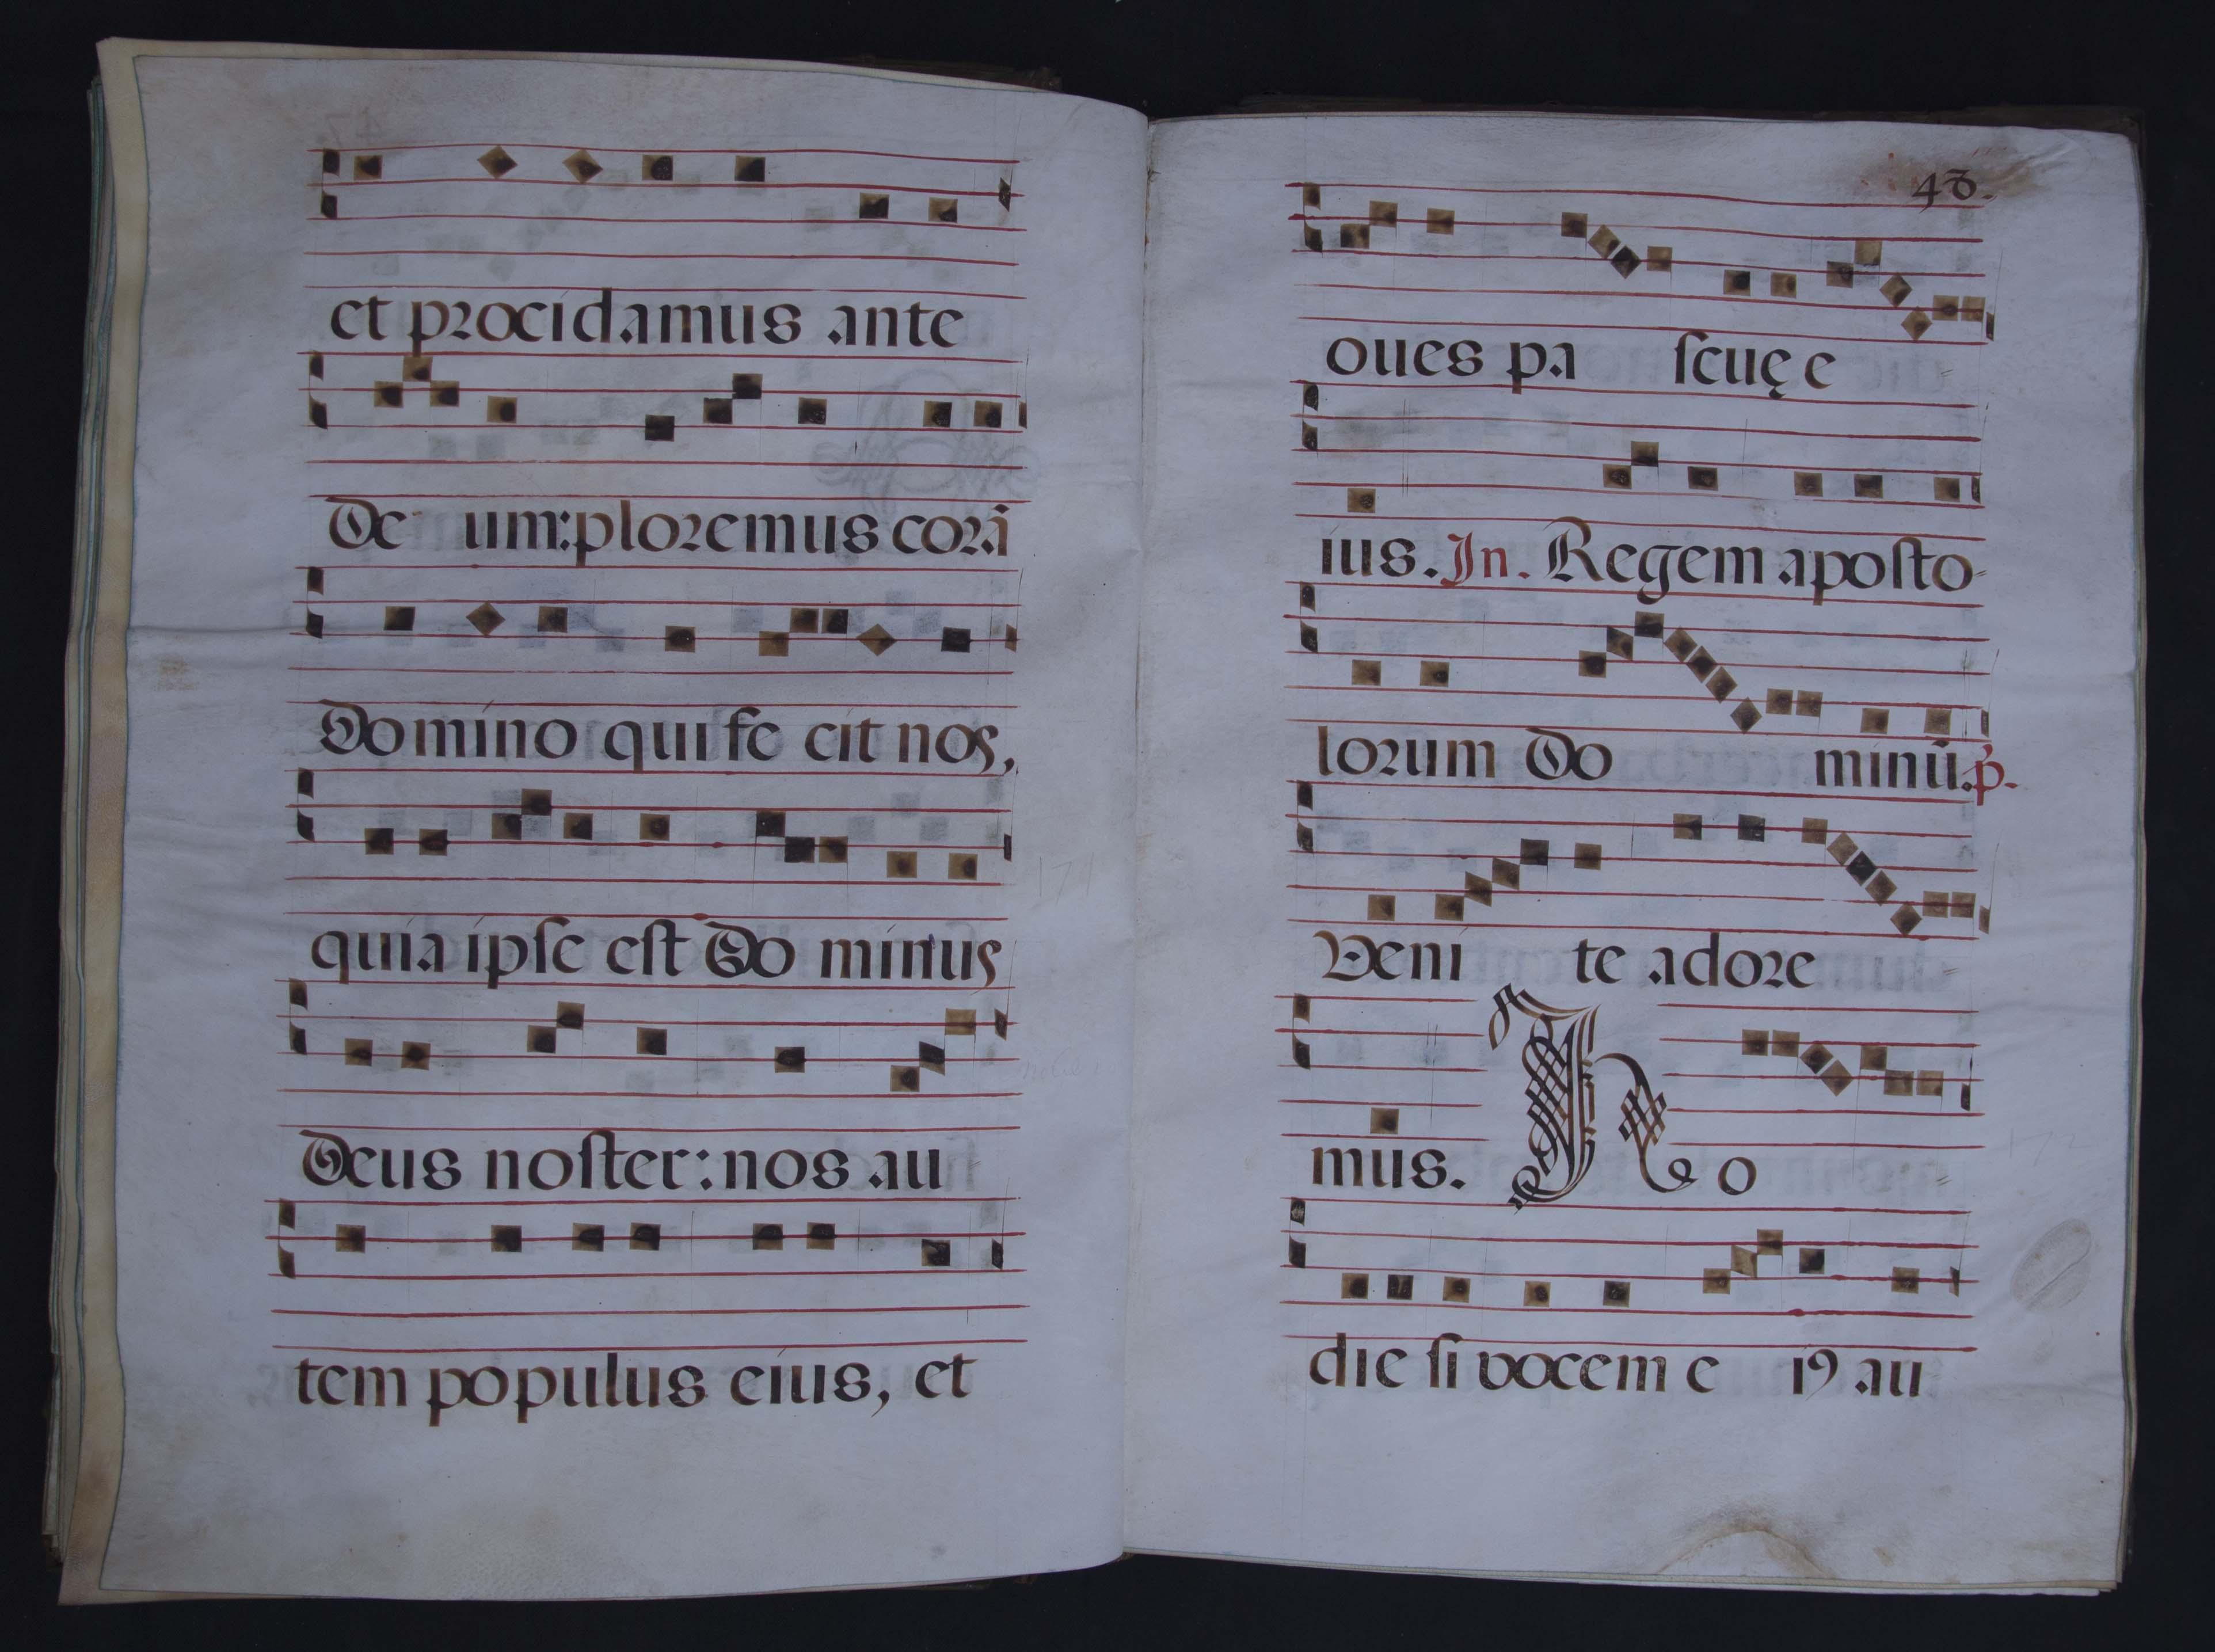 et procidamus ante
De um: ploremus corā
Domino qui fe cit nos,
quia ipſe eſt Do minus
Deus noſter: nos au
tem populus eius, et
48.
oues pa ſcuę e
ius. In. Regem apoſto-
lorum Do minū. p.
Veni te adore
mus. Ho
die ſi vocem e i⁹ au